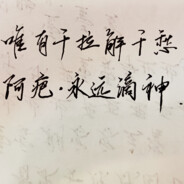 唯有干拉解千愁
阿疤·永远滴神.